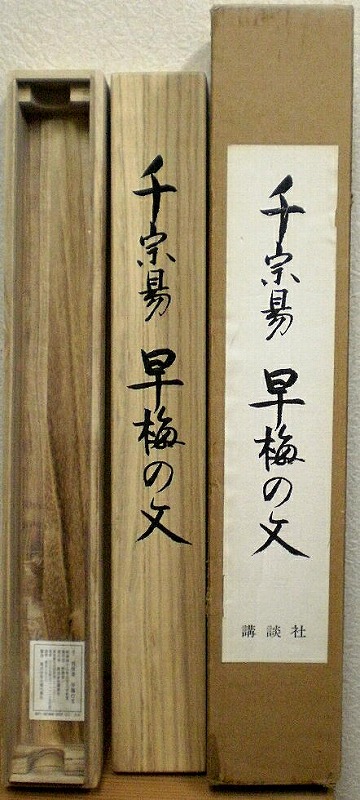 千宗易 早梅の文
千宗易 早梅の文
講談社